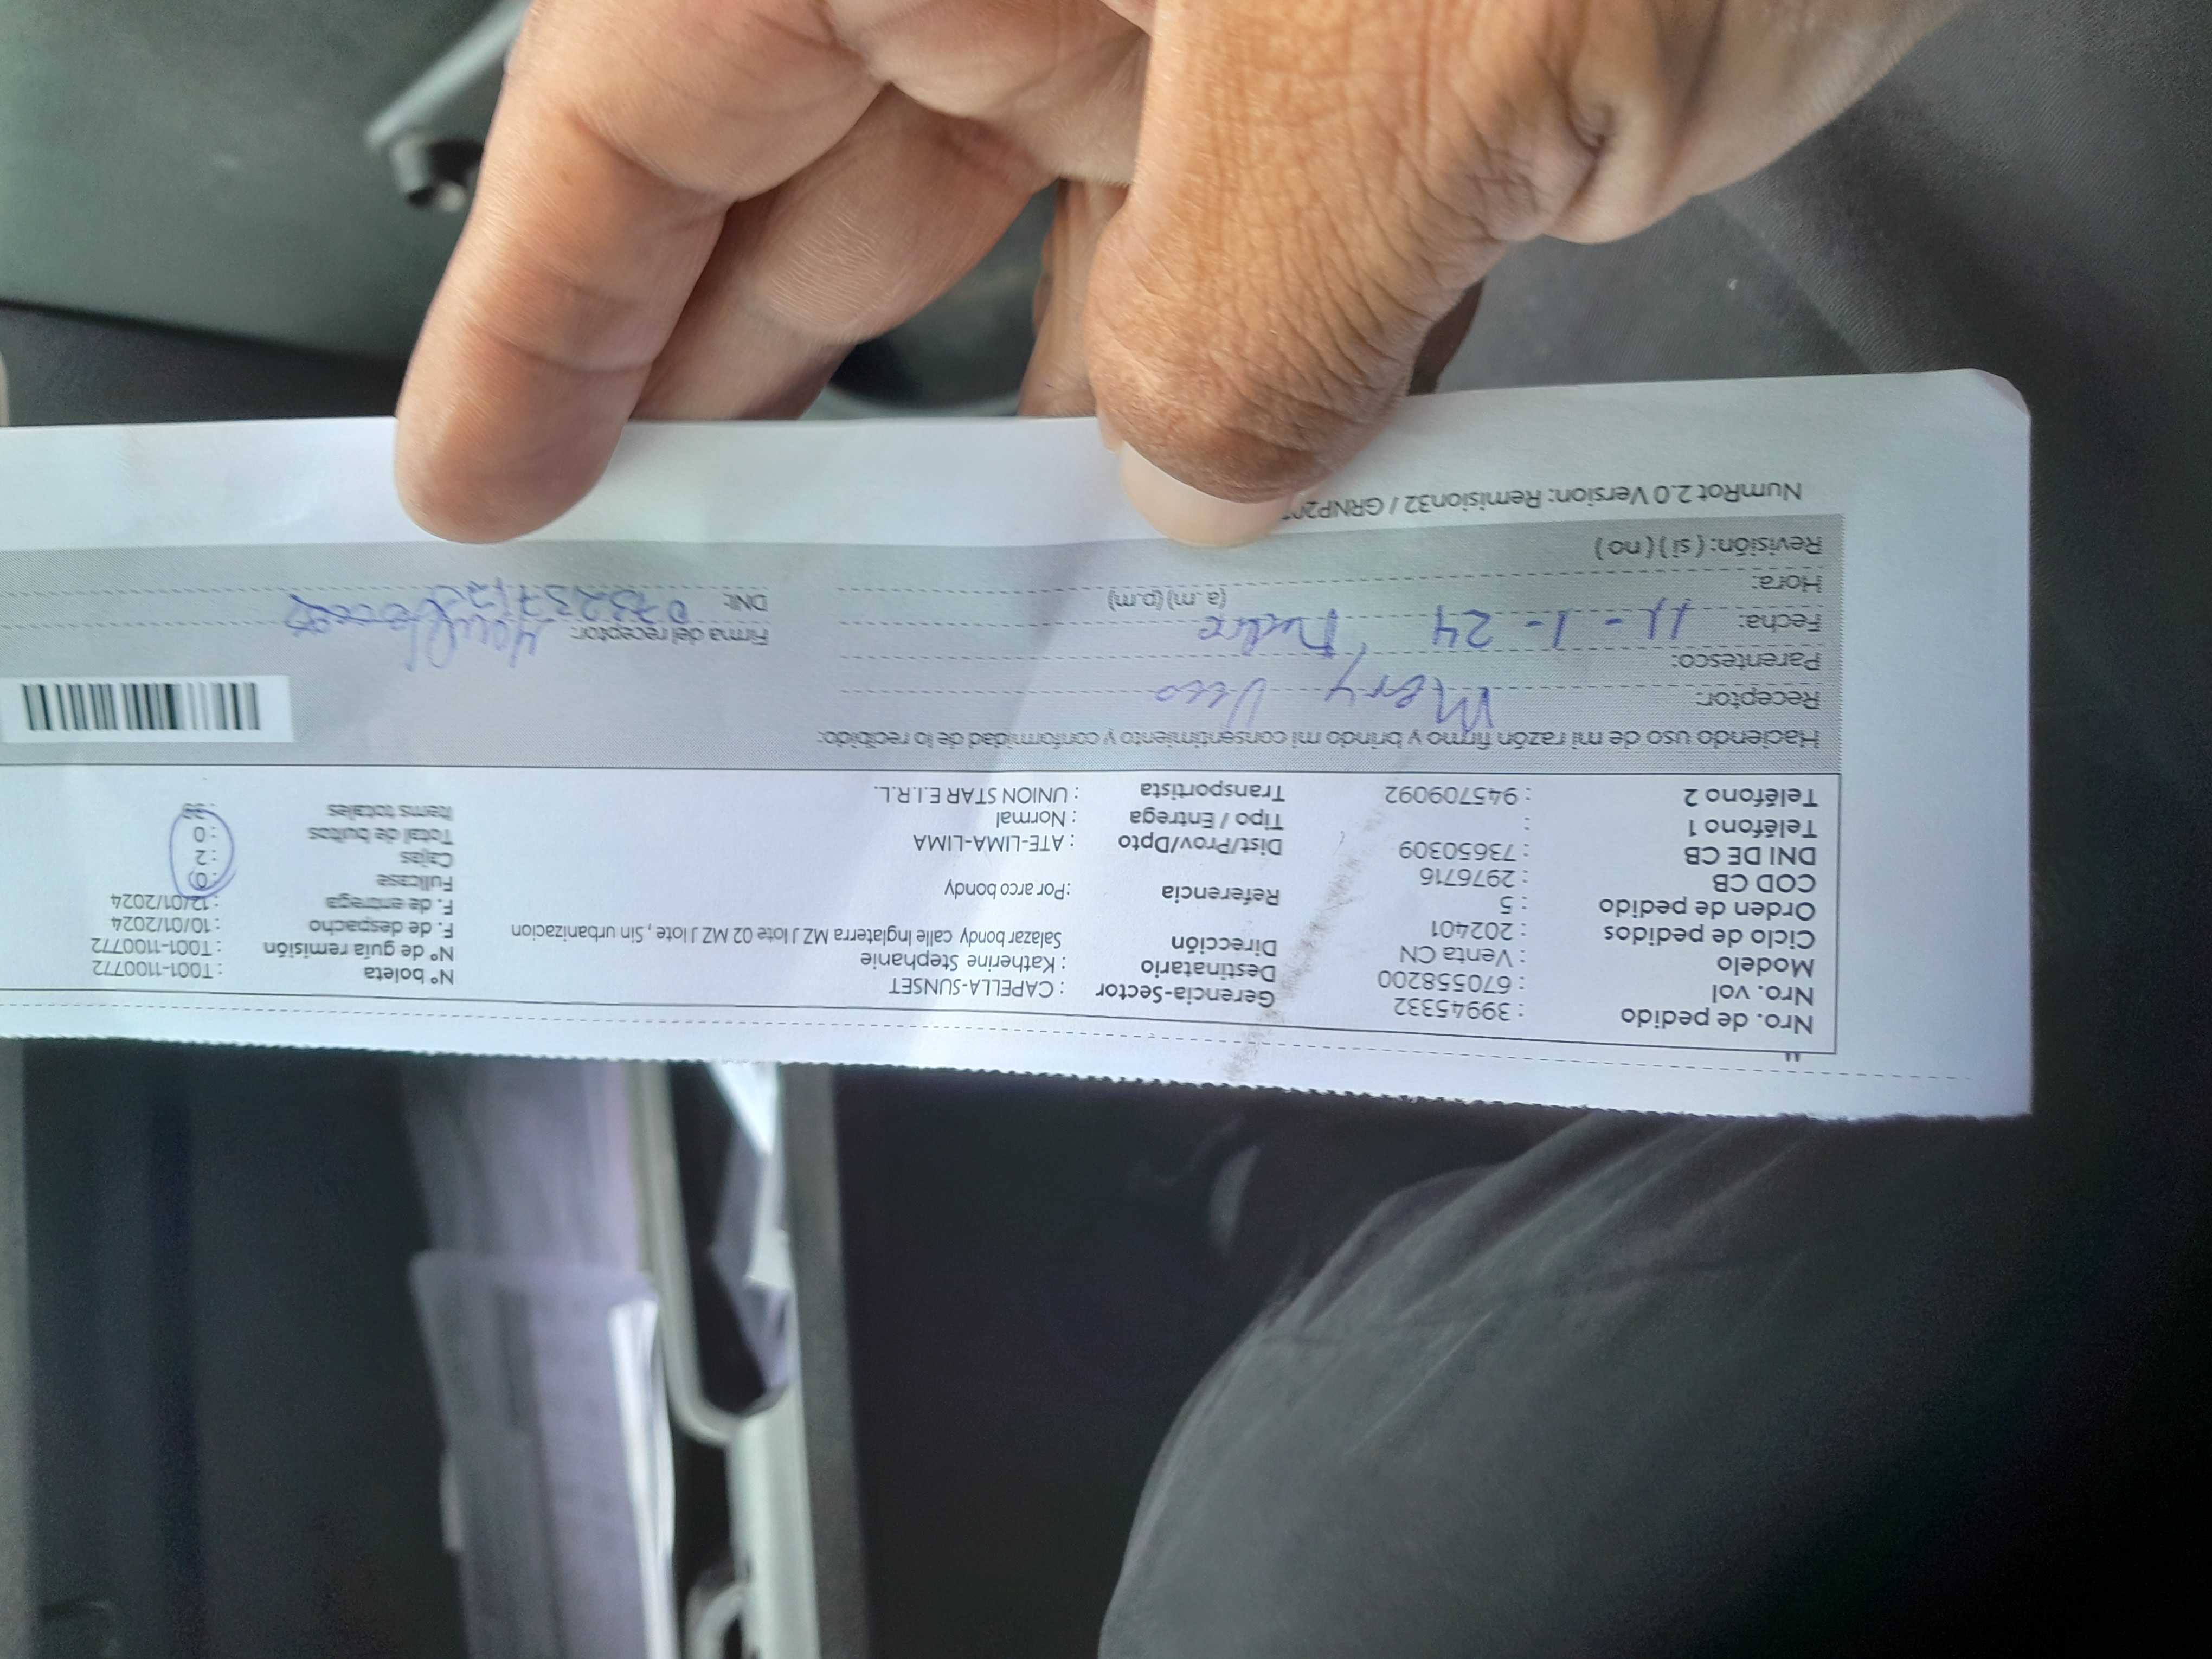 Nro. de pedido : 39945332 Gerencia-Sector : CAPELLA-SUNSET Nº boleta : T001-1100772
Nro. vol : 670558200 Destinatario : Katherine Stephanie Nº de guia remisión : T001-1100772
Modelo : Venta CN Dirección Salazar bondy calle Inglaterra MZ J lote 02 MZ J lote , Sin urbanizacion F. de despacho : 10/01/2024
Ciclo de pedidos : 202401 F. de entrega : 12/01/2024
Orden de pedido : 5 Referencia :Por arco bondy Fullcase : 0
COD CB : 2976716 Cajas : 2
DNI DE CB : 73650309 Dist/Prov/Dpto : ATE-LIMA-LIMA Total de bultos : 0
Teléfono 1 : Tipo / Entrega : Normal Items totales :
Teléfono 2 : 945709092 Transportista : UNION STAR E.I.R.L.
Haciendo uso de mi razón firmo y brindo mi consentimiento y conformidad de lo recibido:
Receptor: Mery
Parentesco: Madre
Fecha: 11-1-24 Firma del receptor:
Hora: (a.m) (p.m) DNI:
Revisión: ( si ) ( no )
NumRot 2.0 Version: Remision32 /